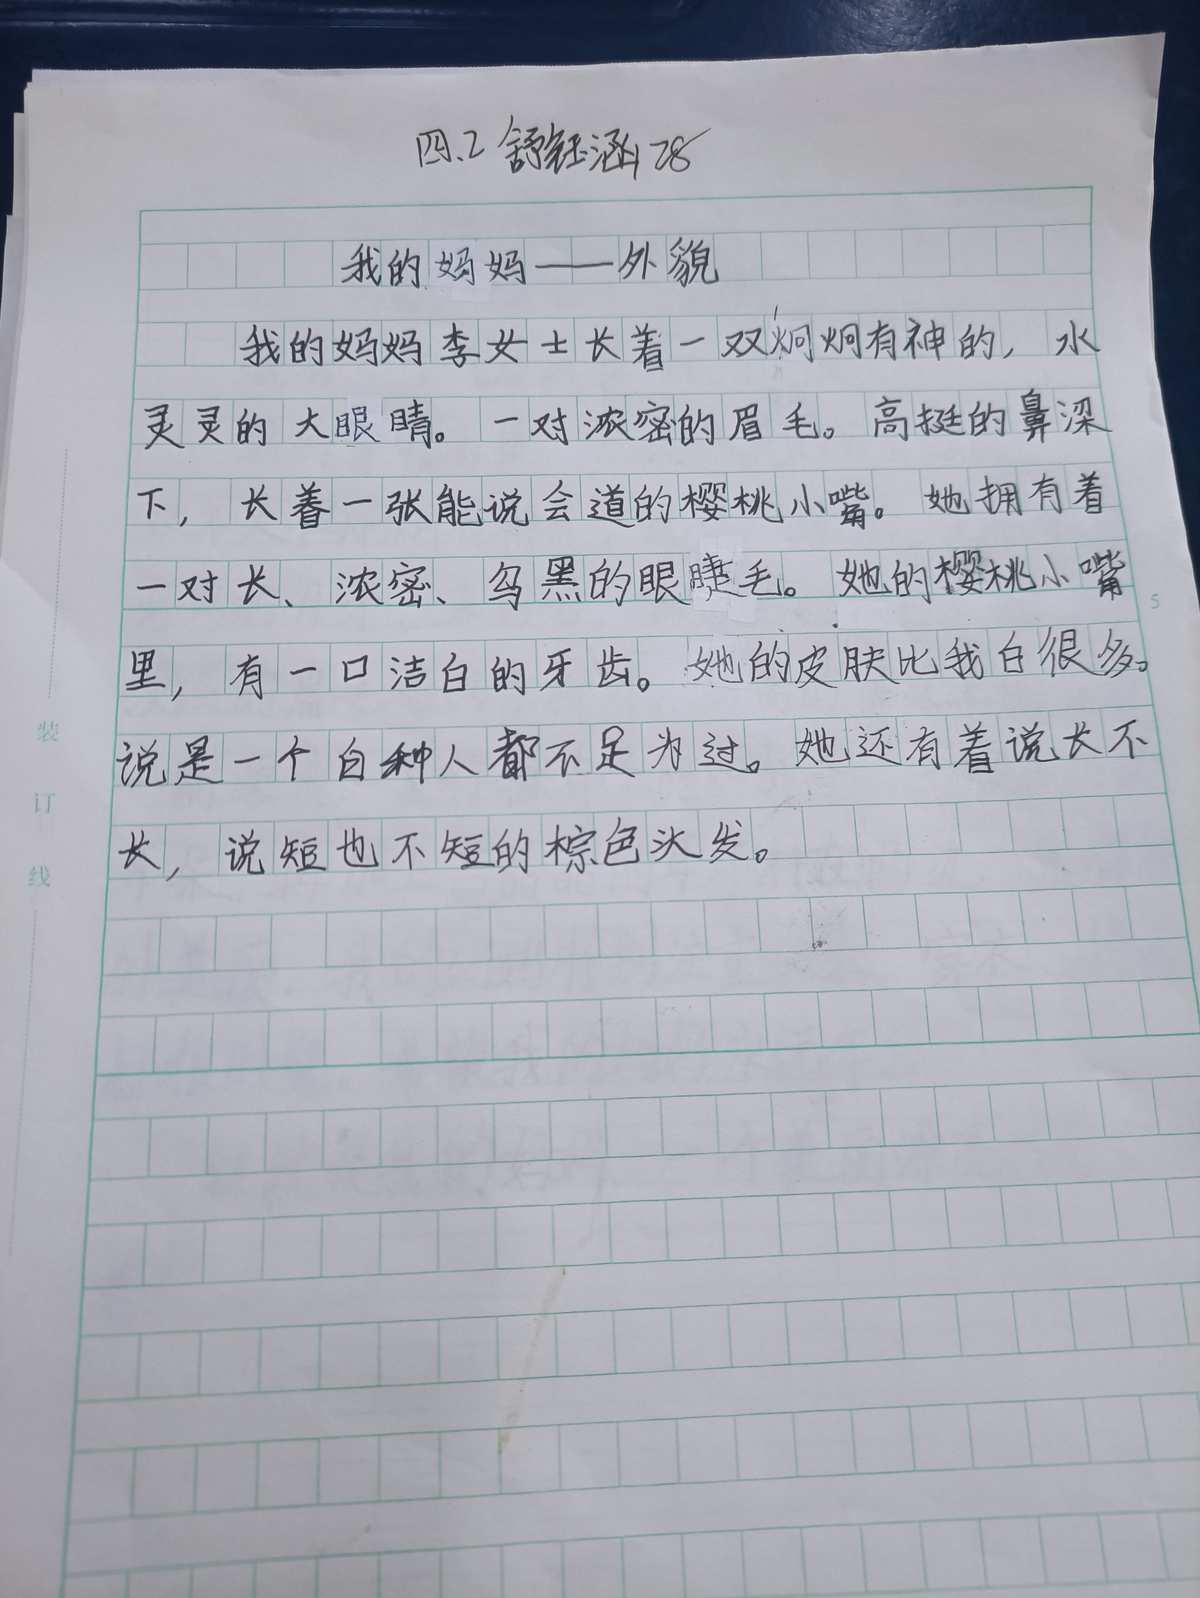 四.2 舒钰涵 28
我的妈妈——外貌
我的妈妈李女士长着一双炯炯有神的,水
灵灵的大眼睛。一对浓密的眉毛。高挺的鼻梁
下,长着一张能说会道的樱桃小嘴。她拥有着
一对长、浓密、乌黑的眼睫毛。她的樱桃小嘴
里,有一口洁白的牙齿。她的皮肤比我白很多。
说是一个白种人都不足为过。她还有着说长不
长,说短也不短的棕色头发。
5
装
订
线